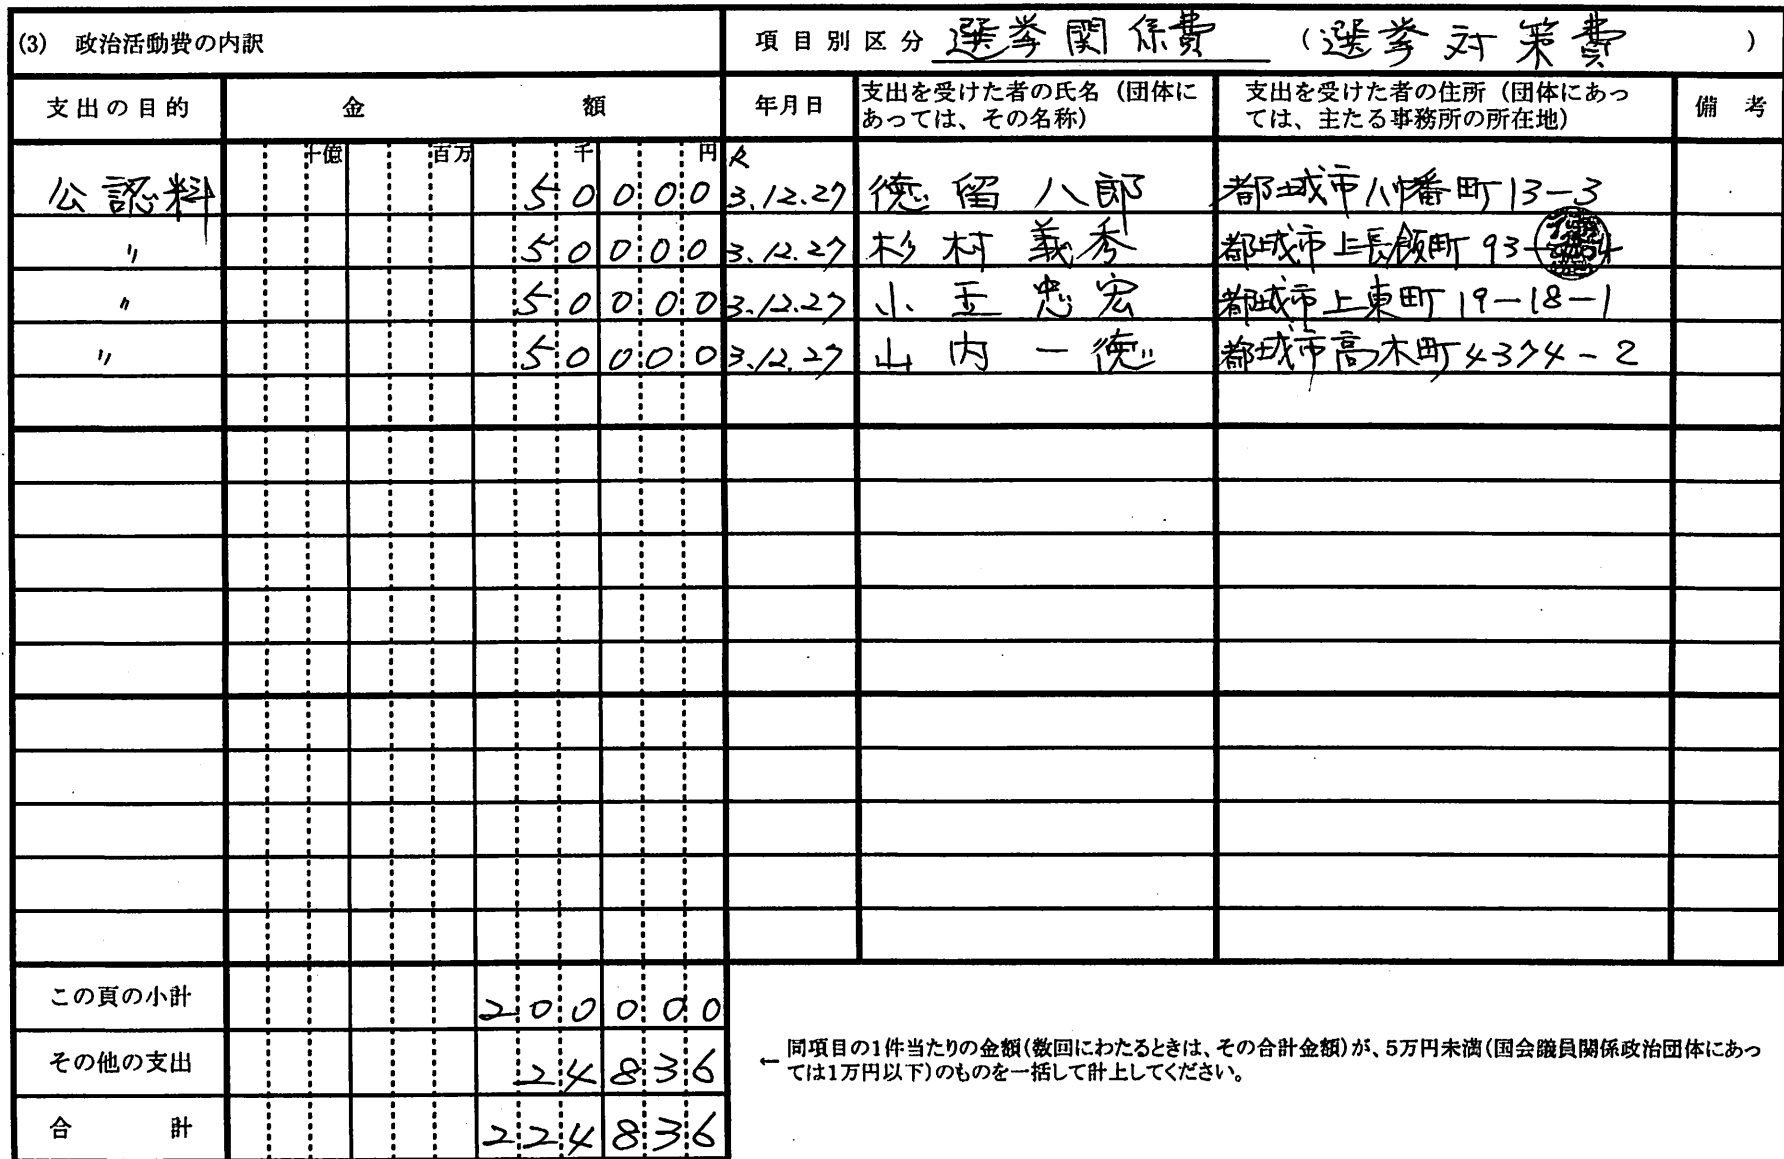 (3) 政治活動費の内訳 項目別区分 選挙関係費 (選挙対策費 )
支出の目的 金 額 年月日 支出を受けた者の氏名(団体にあっては、その名称) 支出を受けた者の住所(団体にあっては、主たる事務所の所在地) 備 考
十億 百万 千 円
公認料 50000 R3.12.27 徳留八郎 都城市八幡町13-3
〃 50000 3.12.27 杉村義秀 都城市上長飯町93
〃 50000 3.12.27 小玉忠宏 都城市上東町19-18-1
〃 50000 3.12.27 山内一徳 都城市高木町4374-2
この頁の小計 200000
その他の支出 24836
← 同項目の1件当たりの金額(数回にわたるときは、その合計金額)が、5万円未満(国会議員関係政治団体にあっ
ては1万円以下)のものを一括して計上してください。
合 計 224836